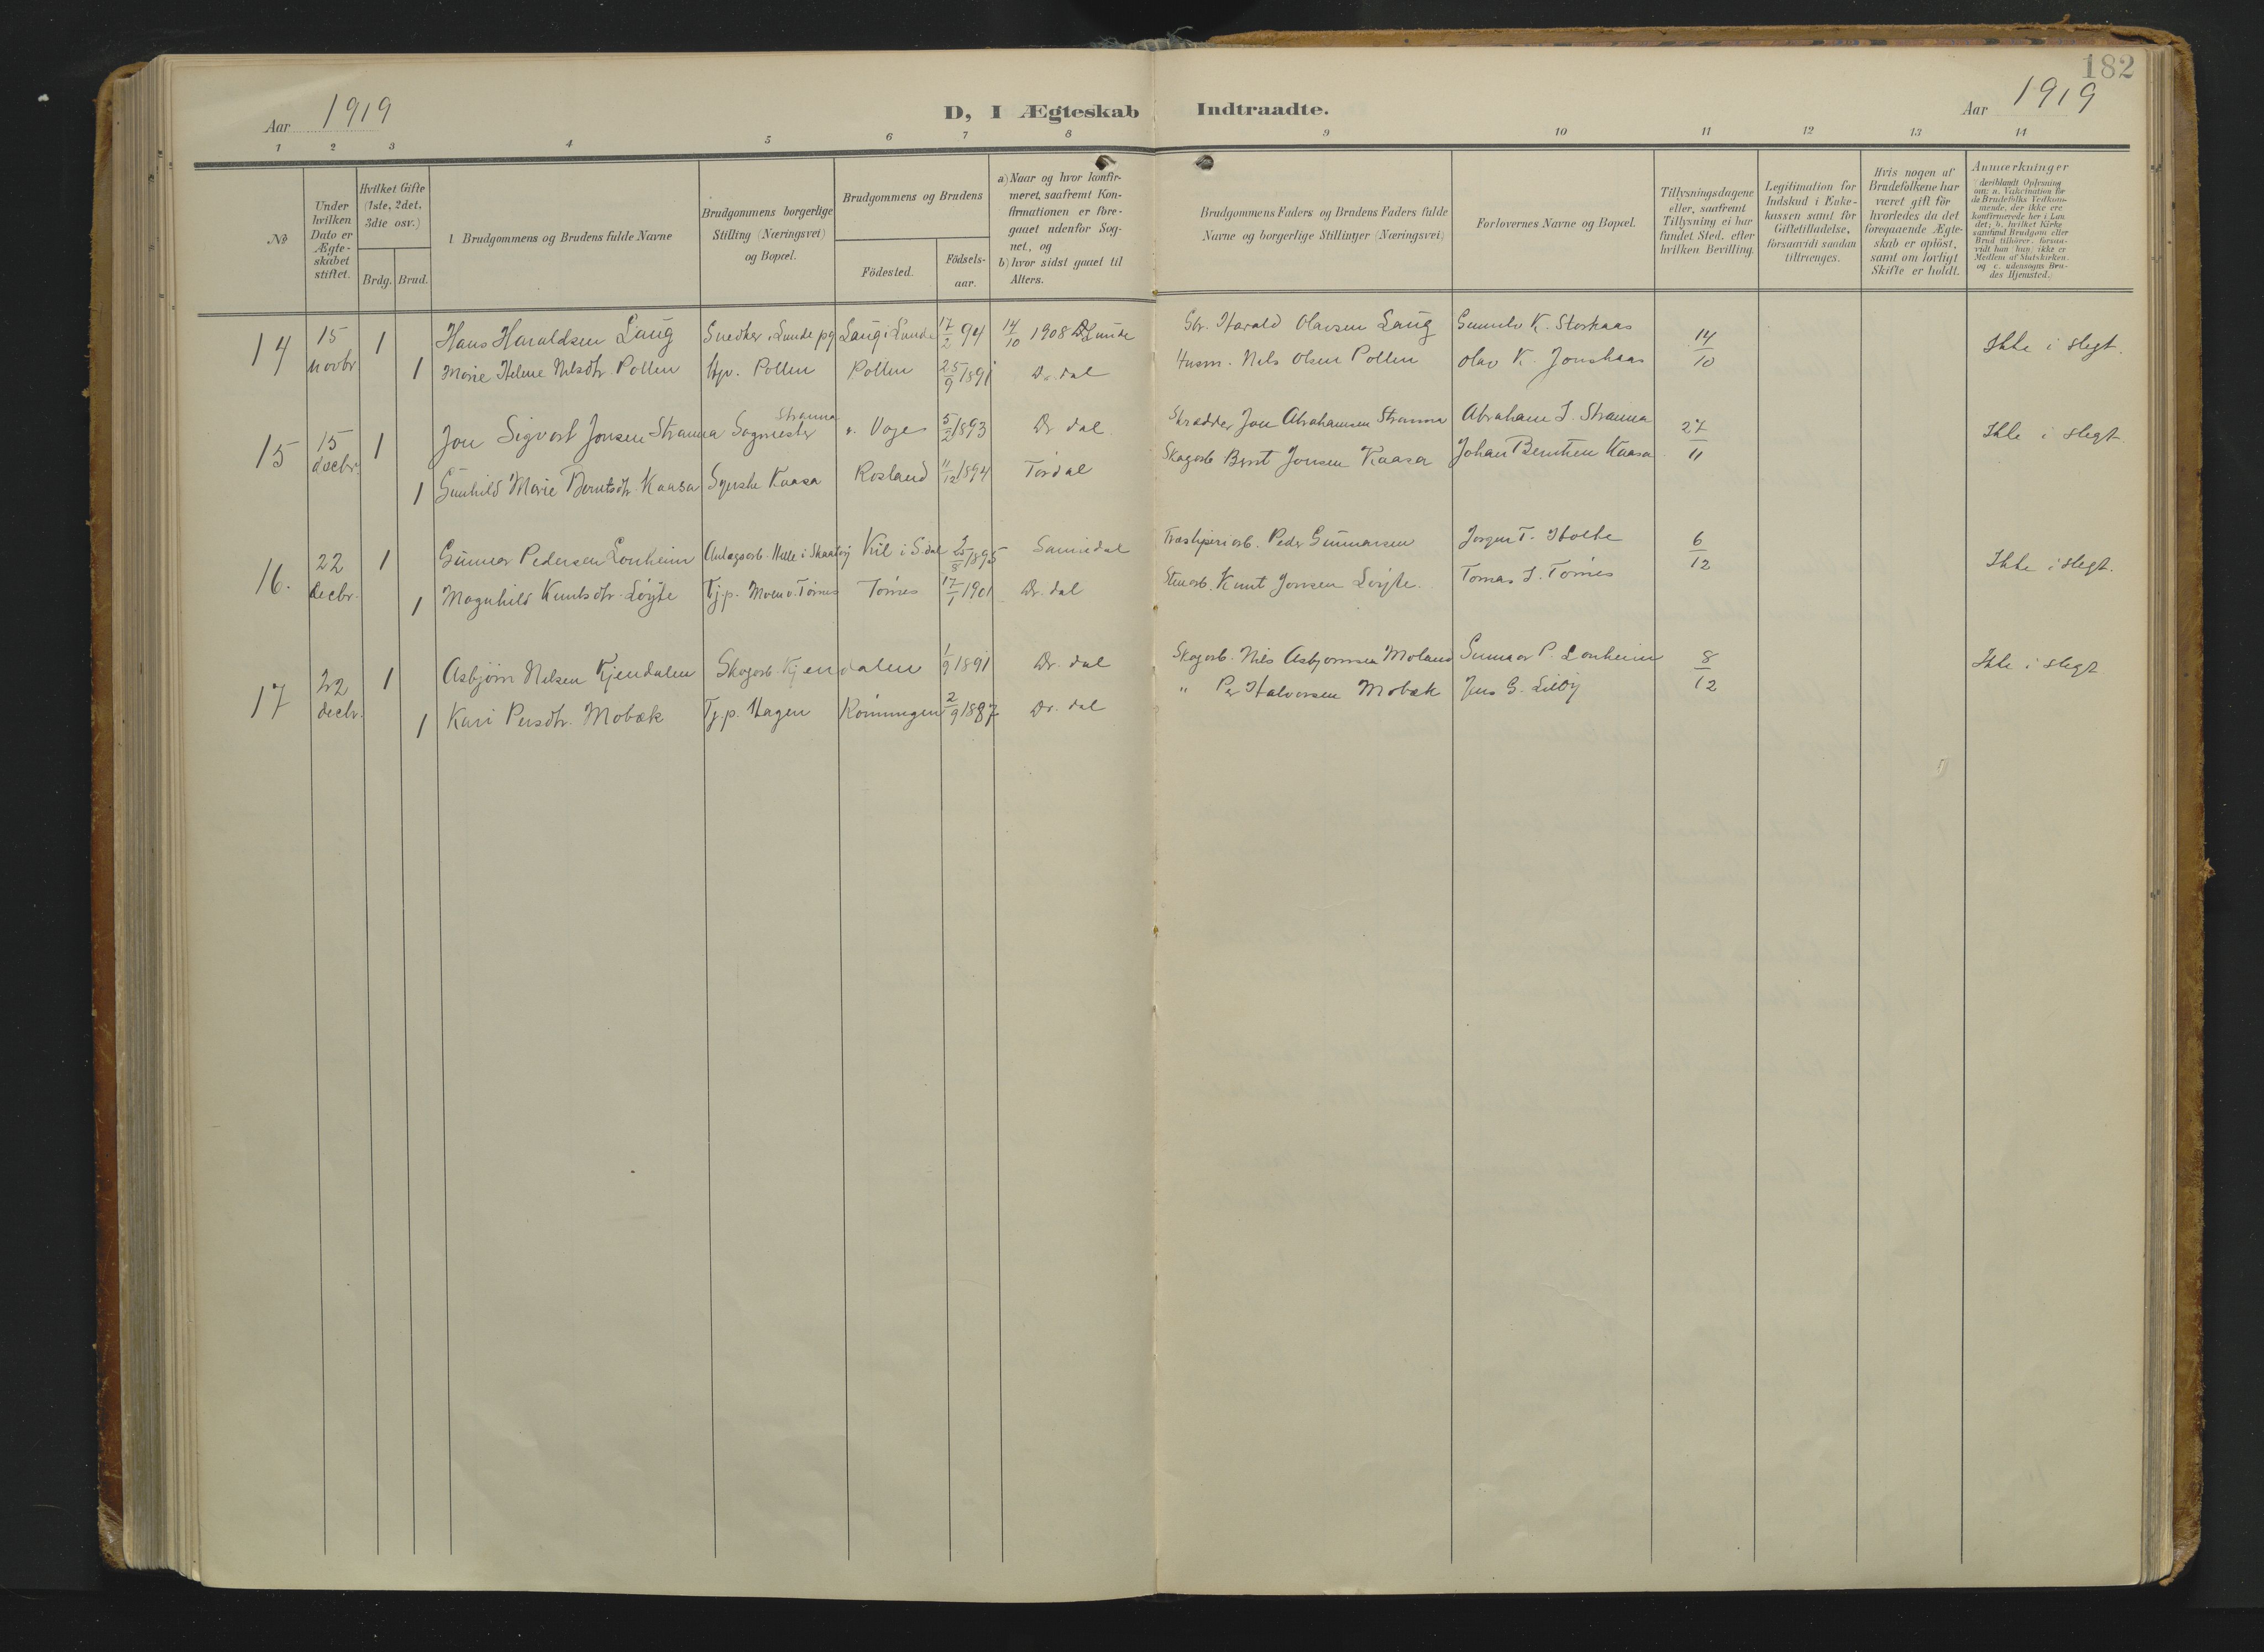 182
Aar 1919
D, I Ægteskab Indtraadte.
Aar 1919
1 2 3 4 5 6 7 8 9 10 11 12 13 14
No
Under hvilken Dato er Ægte-skabet stiftet.
Hvilket Gifte (1ste, 2det, 3die osv.)
Brdg. Brud.
1. Brudgommens og Brudens fulde Navne
Brudgommens borgerlige Stilling (Næringsvei) og Bopæl.
Brudgommens og Brudens
Födested.
Födsels-aar.
a) Naar og hvor konfir-meret, saafremt Kon-firmationen er fore-gaaet udenfor Sog-net, og
b) hvor sidst gaaet til Alters.
Brudgommens Faders og Brudens Faders fulde Navne og borgerlige Stillinger (Næringsvei)
Forlovernes Navne og Bopæl.
Tillysningsdagene eller, saafremt Tillysning ei har fundet Sted, efter hvilken Bevilling.
Legitimation for Indskud i Enke-kassen samt for Giftetilladelse, forsaavidt saadan tiltrænges.
Hvis nogen af Brudefolkene har været gift för hvorledes da det foregaaende Ægte-skab er oplöst, samt om lovligt Skifte er holdt.
Anmærkninger (deriblandt Oplysning om: a. Vakcination for de Brudefolks Vedkom-mende, der ikke ere konfirmerede her i Lan-det; b. hvilket Kirke-samfund Brudgom eller Brud tilhører, forsaa-vidt han (hun) ikke er Medlem af Statskirken, og c. udensogns Bru-des Hjemsted.)
14 15 novbr 1 Hans Haraldsen Laug Snedker i Lunde pg Laug i Lunde 17/2 94 14/10 1908 Lunde Gbr. Harald Olavsen Laug Gunnlv K. Storkaas 14/10 Ikke i slegt.
1 Marie Helene Nilsdtr. Pollen Hjv. Pollen Pollen 25/9 1891 Dr. dal Husm. Nils Olsen Pollen Olav K. Jonskaas
15 15 decbr. 1 Jon Sigvart Jonsen Stranna Sagmester Stranna v. Voje 5/2 1893 Dr dal. Skrædder Jon Abrahamsen Stranna Abraham J. Stranna 27/11 Ikke i slegt.
1 Gunhild Marie Berntsdtr. Kaasa Syerske Kaasa Rosland 11/12 1894 Tørdal Skogarb Bernt Jonsen Kaasa Johan Berntsen Kaasa
16. 22 decbr. 1 Gunnar Pedersen Lonheim Anlagsarb. Helle i Skaatøy Kil i S.dal 25/8 1895 Sannidal Træsliperiarb. Peder Gunnarsen Jørgen T. Holte 6/12 Ikke i slegt.
1 Magnhild Knutsdtr. Löyte Tj.p. Moen v. Törnes Törnes 17/1 1901 Dr. dal Stenarb. Knut Jonsen Löyte. Tomas J. Törnes
17 22 decbr. 1 Asbjörn Nilsen Kjendalen Skogarb. Kjendalen 1/9 1891 Dr. dal Skogarb. Nils Asbjørnsen Moland Gunnar P. Lonheim 8/12 Ikke i slegt
1 Kari Persdtr. Mobæk Tj.p. Hagen Rönningen 2/9 1887 Dr. dal " Per Halvorsen Mobæk Jens G.